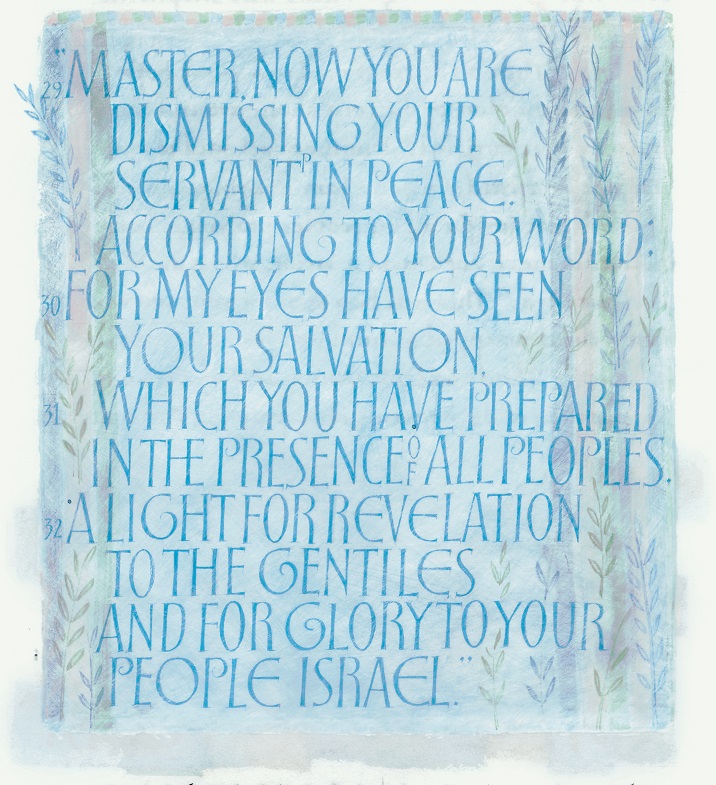 29 "MASTER, NOW YOU ARE
DISMISSING YOUR
SERVANT P IN PEACE,
ACCORDING TO YOUR WORD;
30 FOR MY EYES HAVE SEEN
YOUR SALVATION,
31 WHICH YOU HAVE PREPARED
IN THE PRESENCE OF ALL PEOPLES,
32 A LIGHT FOR REVELATION
TO THE GENTILES
AND FOR GLORY TO YOUR
PEOPLE ISRAEL."